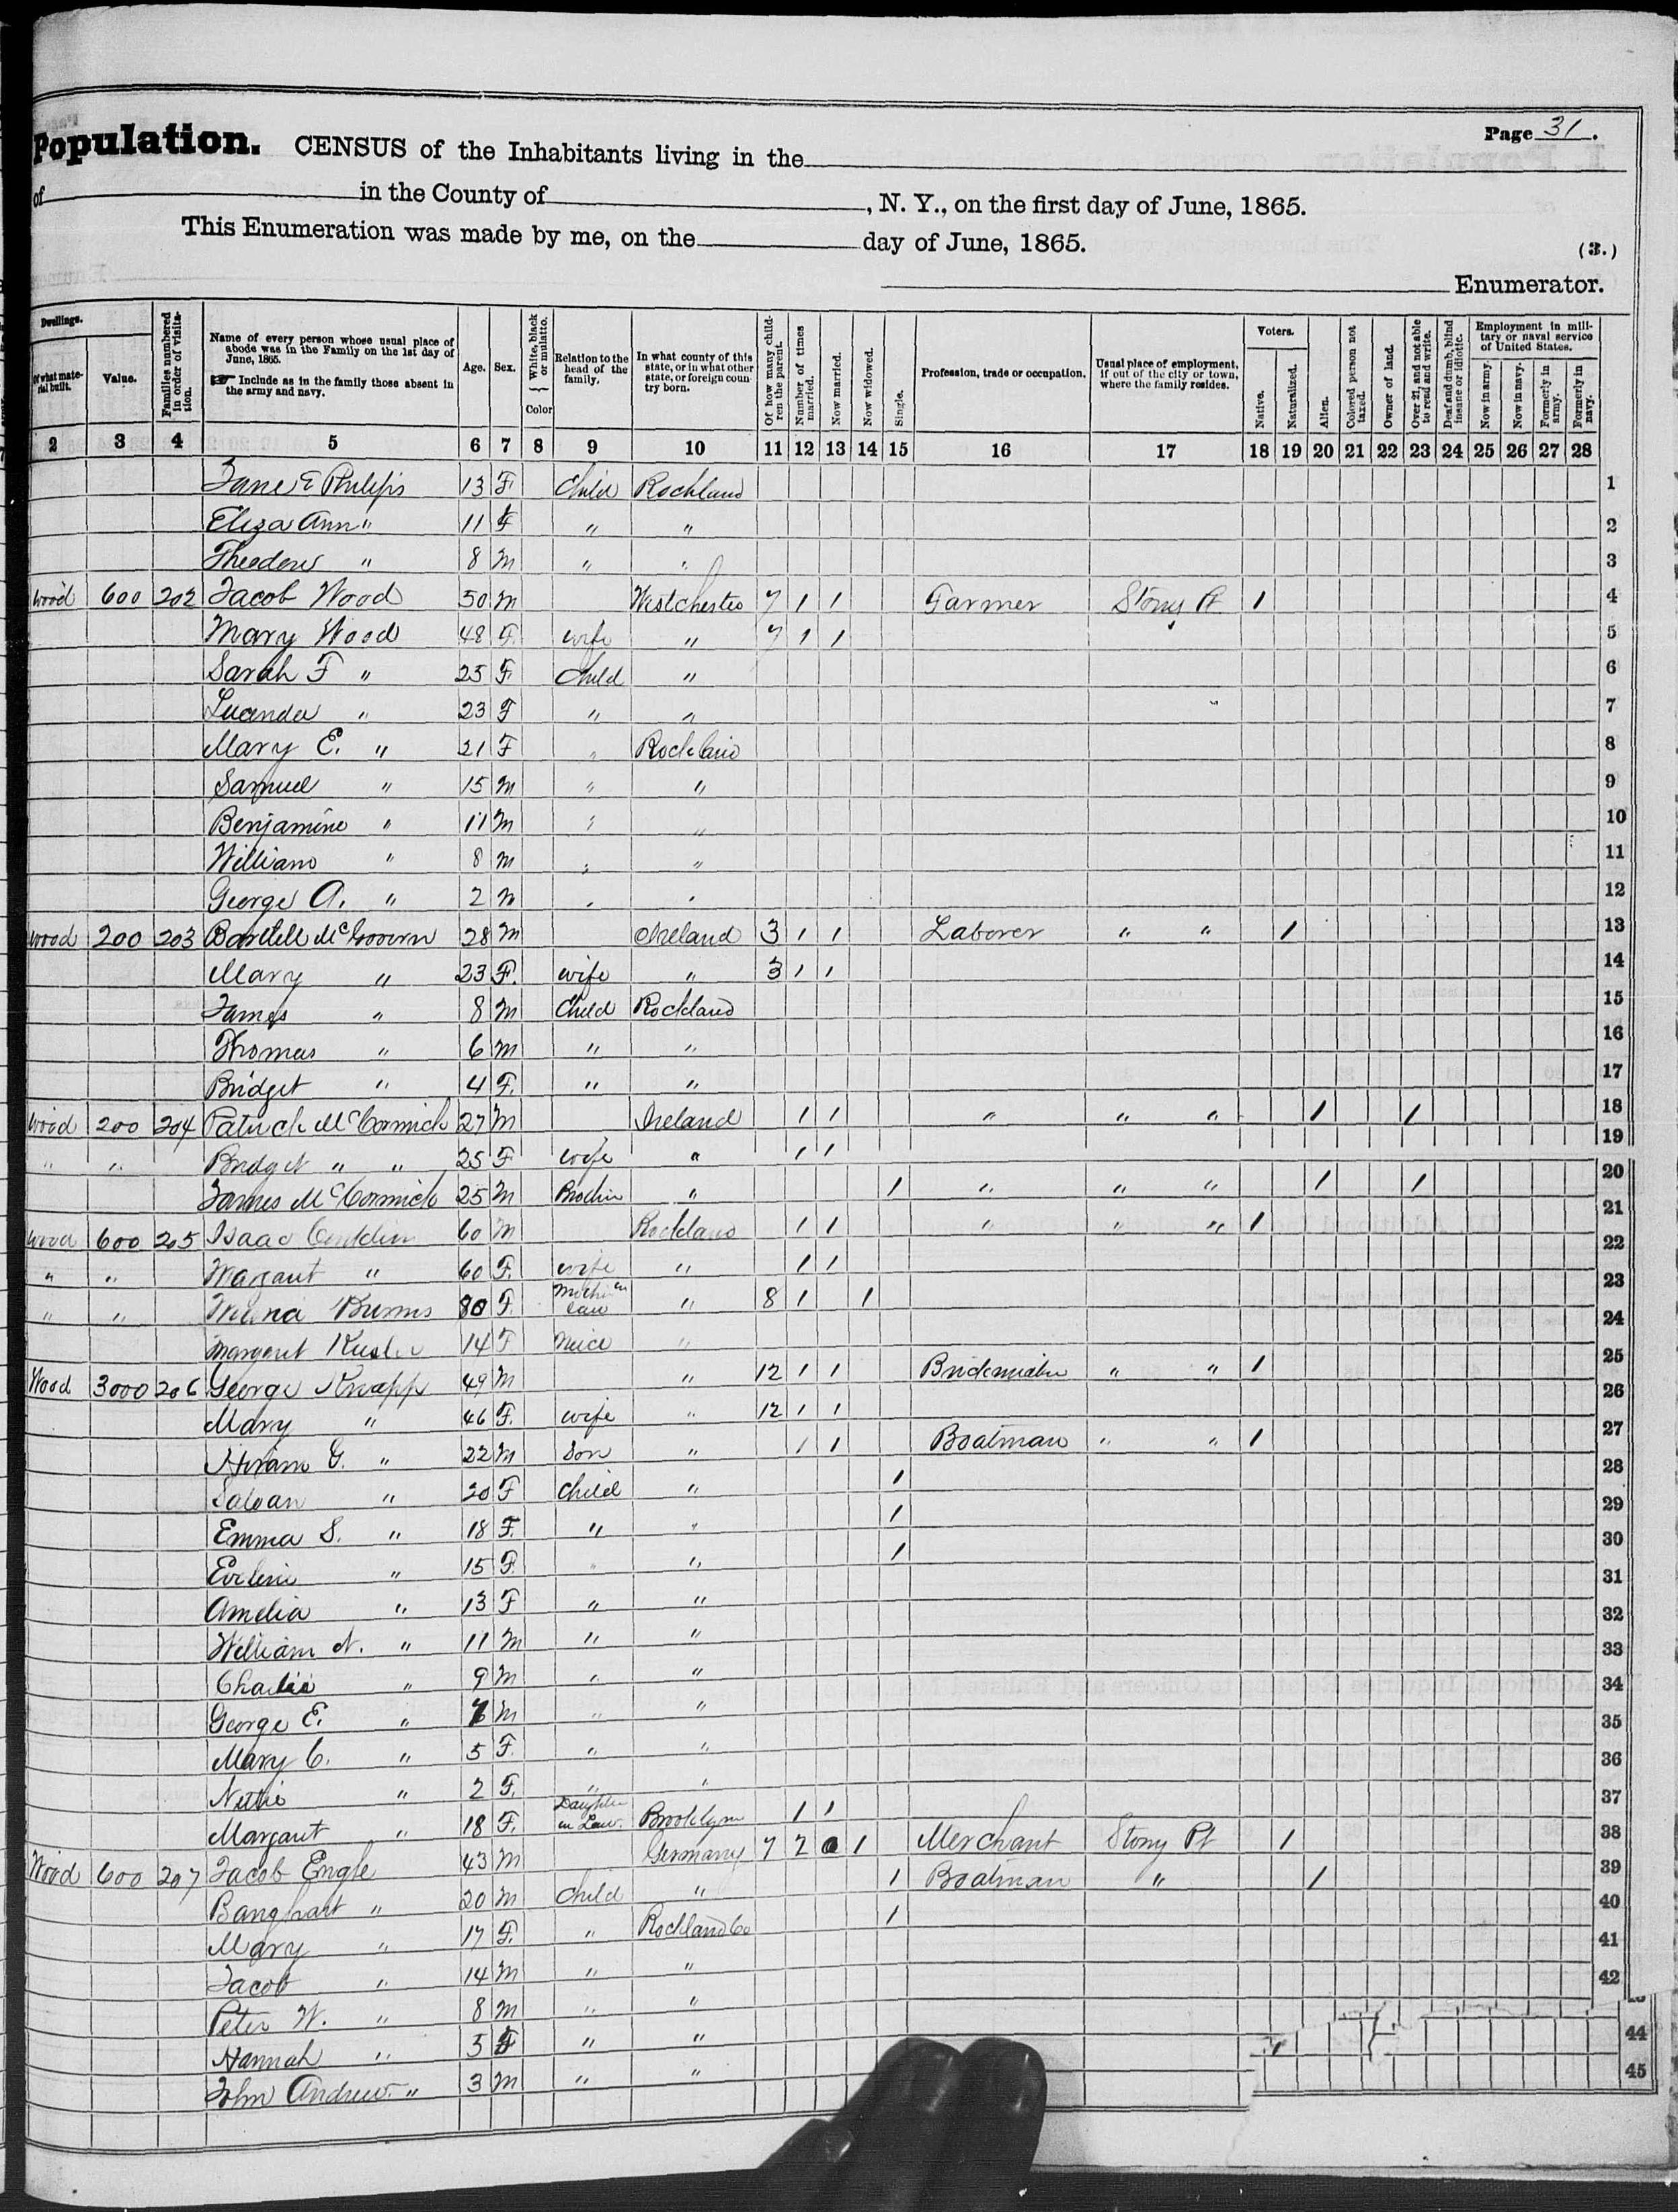 Population. CENSUS of the Inhabitants living in the Page 31.
of in the County of , N. Y., on the first day of June, 1865.
This Enumeration was made by me, on the day of June, 1865. (3.)
Enumerator.
Dwellings. Of what material built. Value. Families numbered in order of visitation. Name of every person whose usual place of abode was in the Family on the 1st day of June, 1865. ☞ Include as in the family those absent in the army and navy. Age. Sex. White, black or mulatto. } Color Relation to the head of the family. In what county of this state, or in what other state, or foreign country born. Of how many children the parent. Number of times married. Now married. Now widowed. Single. Profession, trade or occupation. Usual place of employment, if out of the city or town, where the family resides. Voters. Native. Naturalized. Alien. Colored person not taxed. Owner of land. Over 21, and not able to read and write. Deaf and dumb, blind insane or idiotic. Employment in military or naval service of United States. Now in army. Now in navy. Formerly in army. Formerly in navy.
2 3 4 5 6 7 8 9 10 11 12 13 14 15 16 17 18 19 20 21 22 23 24 25 26 27 28
Jane E Philips 13 F Child Rockland 1
Eliza Ann " 11 F " " 2
Theodore " 8 M " " 3
Wood 600 202 Jacob Wood 50 M Westchester 7 1 1 Farmer Stony Pt 1 4
Mary Wood 48 F wife " 7 1 1 5
Sarah F " 25 F Child " 6
Luanda " 23 F " " 7
Mary E. " 21 F " Rockland 8
Samuel " 15 M " " 9
Benjamine " 11 M " " 10
William " 8 M " " 11
George A. " 2 M " " 12
Wood 200 203 Bartlell McGovern 28 M Ireland 3 1 1 Laborer " " 1 13
Mary " 23 F. wife " 3 1 1 14
James " 8 M Child Rockland 15
Thomas " 6 M " " 16
Bridget " 4 F. " " 17
Wood 200 204 Patrick McCormick 27 M Ireland 1 1 " " " 1 1 18
" " Bridget " " 25 F wife " 1 1 19
James McCormick 25 M Brother " 1 " " " 1 1 20
Wood 600 205 Isaac Conklin 60 M Rockland 1 1 " " " 1 21
" " Margaret " 60 F. wife " 1 1 22
" " Burns 80 F. Mother in law " 8 1 1 23
Margaret 14 F Neice " 24
Wood 3000 206 George Knapp 49 M " 12 1 1 " " 1 25
Mary " 46 F. wife " 12 1 1 26
Hiram G. " 22 M Son " 1 1 Boatman " " 1 27
" 20 F Child " 1 28
Emma S. " 18 F. " " 1 29
Eveline " 15 F. " " 1 30
Amelia " 13 F " " 31
William N. " 11 M " " 32
Charlie " 9 M " " 33
George E. " 7 M " " 34
Mary C. " 5 F. " " 35
Nettie " 2 F. " " 36
Margaret " 18 F. Daughter in Law. Brooklyn 1 1 37
Wood 600 207 Jacob Engle 43 M Germany 7 2 0 1 Merchant Stony Pt 1 38
Banghart " 20 M Child " 1 Boatman " 1 39
Mary " 17 F. " Rockland Co 1 40
Jacob " 14 M " " 41
Peter W. " 8 M " " 42
Hannah " 5 F " " 44
John Andrew " 3 M " " 45